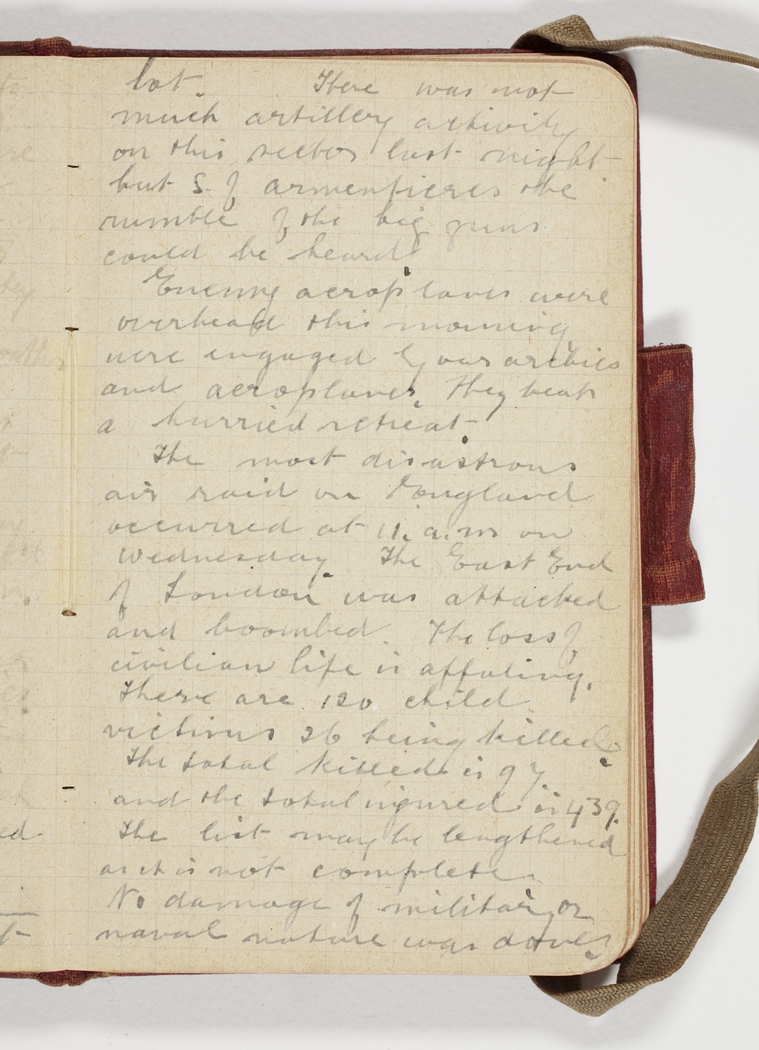 lot. There was not
much artillery activity
on this sector last night
but S. of armentieres the
rumble of the big guns
could be heard
Enemy aeroplanes were
overhead this morning
were engaged by our archies
and aeroplanes. They beat
a hurried retreat
The most disastrous
air raid on England
occurred at 11. a.m on
Wednesday The East End
of London was attacked
and boombed. The loss of
civilian life is appaling.
There are 120 child
victims 26 being killed.
The total killed is 97
and the total injured is 439.
The list may be lengthened
as it is not complete.
No damage of military or
naval nature was done.